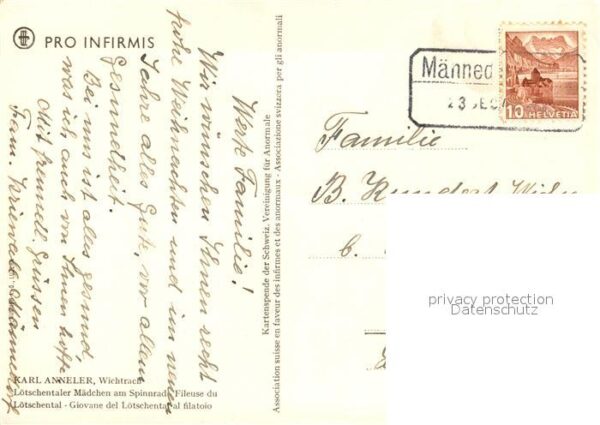 PRO INFIRMIS
Werte Familie!
Wir wünschen Ihnen recht
frohe Weihnachten und im neuen
Jahre alles Gute, vor allem
Gesundheit.
Bei uns ist alles gesund,
was ich auch von Ihnen hoffe
Mit freundl. Grüssen
Fam.
KARL ANNELER, Wichtrach
Lötschentaler Mädchen am Spinnrad - Fileuse du
Lötschental - Giovane del Lötschental al filatoio
Kartenspende der Schweiz. Vereinigung für Anormale
Association suisse en faveur des infirmes et des anormaux - Associazione svizzera per gli anormali
Männed
23 DEZ
10 HELVETIA
Familie
B. Kundert
b.
privacy protection
Datenschutz